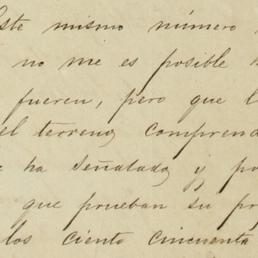 este mismo número
no me es posible
fueren, pero que l
el terreno, comprend
ha señalado, y po
que prueban su pr
los ciento cincuenta